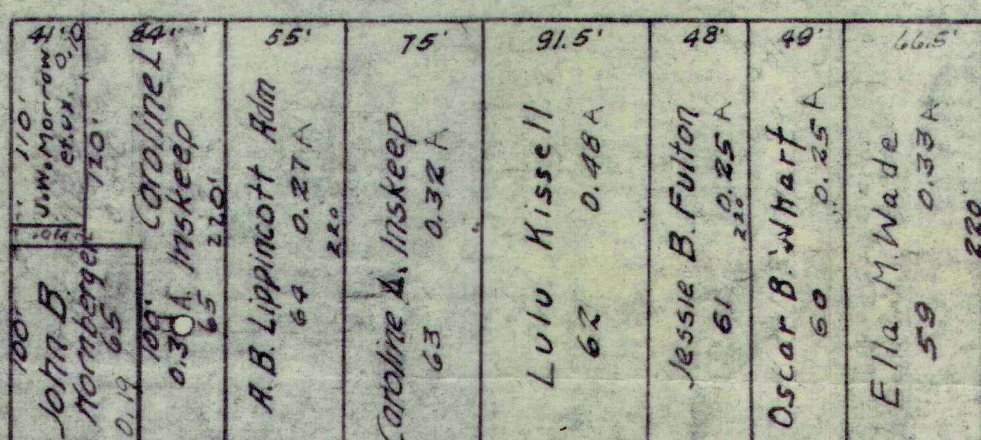 41'
110'
J.W. Morrow 0.10
et.ux.
120'
.01A
100'
John B
Hornberger
65
0.19
84'
Caroline L
Inskeep
220'
100'
0.30 A.
65
55'
A.B. Lippincott Adm
64 0.27 A
220
75'
Caroline A. Inskeep
63 0.32 A
91.5'
Lulu Kissell
62 0.48 A
48'
Jessie B. Fulton
61 0.25 A
220
49'
Oscar B. Whart
60 0.25 A
66.5'
Ella M. Wade
59 0.33 A
220